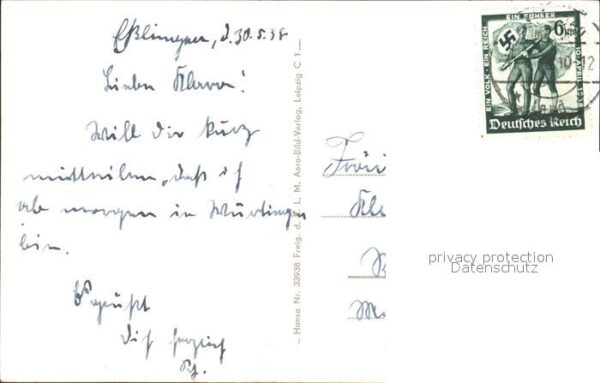 Eßlingen, d. 30.5.38
Liebe Klara!
Will dir kurz
mitteilen, daß ich
ab morgen in
bin.
Es grüßt
dich herzlich
Hansa Nr. 33938 Freig. d. R. L. M. Aero-Bild-Verlag, Leipzig C 1
Fräu
Kla
EIN VOLK · EIN REICH
EIN FÜHRER
6
Deutsches Reich
privacy protection
Datenschutz